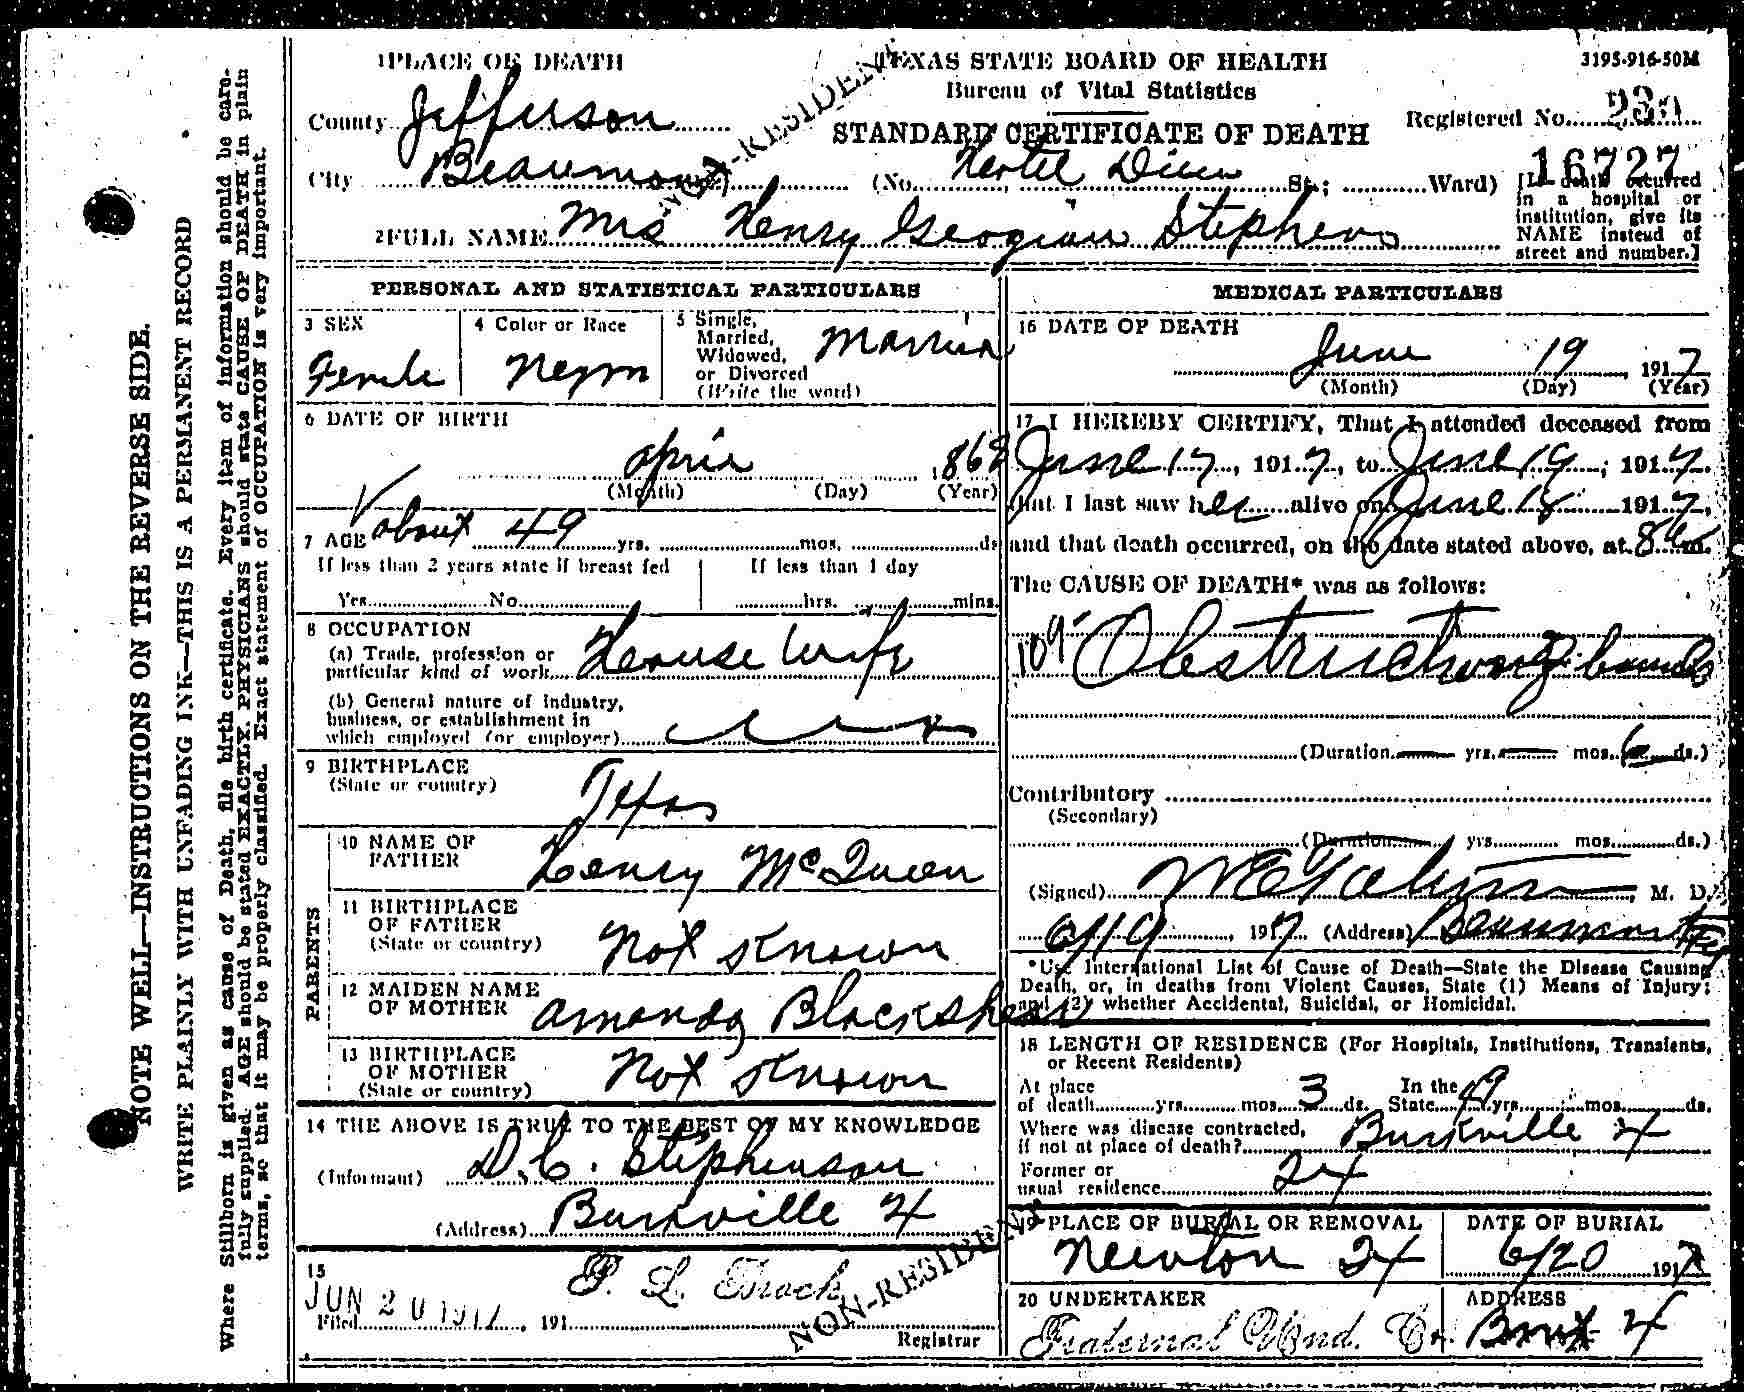 NOTE WELL—INSTRUCTIONS ON THE REVERSE SIDE.
WRITE PLAINLY WITH UNFADING INK—THIS IS A PERMANENT RECORD
Where Stillborn is given as cause of Death, file birth certificate. Every item of information should be care-
fully supplied. AGE should be stated EXACTLY. PHYSICIANS should state CAUSE OF DEATH in plain
terms, so that it may be properly classified. Exact statement of OCCUPATION is very important.
1 PLACE OF DEATH
TEXAS STATE BOARD OF HEALTH
3195-916-50M
Bureau of Vital Statistics
NON-RESIDENT
County Jefferson
STANDARD CERTIFICATE OF DEATH
Registered No.
16727
City Beaumont (No. Hotel St.; Ward)
[If death occurred in a hospital or institution, give its NAME instead of street and number.]
2 FULL NAME Mrs Henry Stephens
PERSONAL AND STATISTICAL PARTICULARS
3 SEX Female
4 Color or Race Negro
5 Single, Married, Widowed, or Divorced (Write the word) Married
6 DATE OF BIRTH
April 1868
(Month) (Day) (Year)
7 AGE about 49 yrs. mos. ds
If less than 2 years state if breast fed
Yes No
If less than 1 day
hrs. mins.
8 OCCUPATION
(a) Trade, profession or particular kind of work House Wife
(b) General nature of industry, business, or establishment in which employed (or employer)
9 BIRTHPLACE
(State or country) Texas
PARENTS
10 NAME OF FATHER Henry McQueen
11 BIRTHPLACE OF FATHER
(State or country) Not Known
12 MAIDEN NAME OF MOTHER Amanda Blackshear
13 BIRTHPLACE OF MOTHER
(State or country) Not Known
14 THE ABOVE IS TRUE TO THE BEST OF MY KNOWLEDGE
(Informant) D.C. Stephenson
(Address) Burkville
15
JUN 20 1917
Filed 191
P. L. Registrar
NON-RESIDENT
MEDICAL PARTICULARS
16 DATE OF DEATH
June 19 1917
(Month) (Day) (Year)
17 I HEREBY CERTIFY, That I attended deceased from
June 17, 1917, to June 19, 1917
that I last saw her alive on June 18 1917,
and that death occurred, on the date stated above, at 8 m.
The CAUSE OF DEATH* was as follows:
109 Obstruction of bowels
(Duration yrs. mos. 6 ds.)
Contributory
(Secondary)
(Duration yrs. mos. ds.)
(Signed) M. D.
6/19, 1917 (Address) Beaumont Tex
*Use International List of Cause of Death—State the Disease Causing
Death, or, in deaths from Violent Causes, State (1) Means of Injury;
and (2) whether Accidental, Suicidal, or Homicidal.
18 LENGTH OF RESIDENCE (For Hospitals, Institutions, Transients,
or Recent Residents)
At place of death yrs. mos. 3 ds. In the State 49 yrs. mos. ds.
Where was disease contracted,
if not at place of death? Burkville
Former or
usual residence
19 PLACE OF BURIAL OR REMOVAL
Newton
DATE OF BURIAL
6/20 1917
20 UNDERTAKER
Fraternal Und. Co.
ADDRESS
Bmt